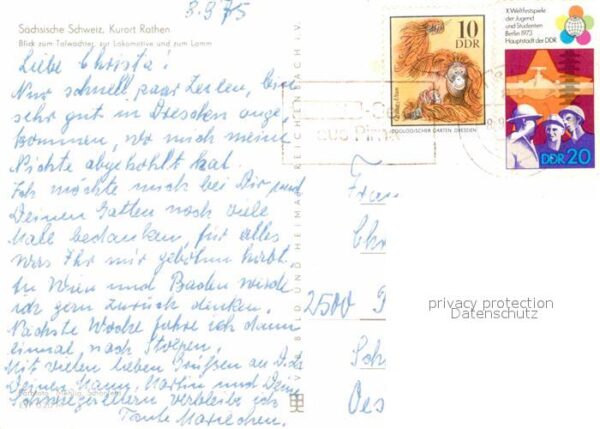 8.9.75
Sächsische Schweiz. Kurort Rathen
Blick zum Talwächter, zur Lokomotive und zum Lamm
Liebe Christa!
Nur schnell paar Zeilen, bin
sehr gut in Dresden ange,
kommen, wo mich meine
Nichte abgehohlt hat.
Ich möchte mich bei Dir und
Deinen Gatten noch viele
Male bedanken, für alles
was Ihr mir geboten habt.
An Wien und Baden werde
ich gern zurück denken.
Nächste Woche fahre ich dann
einmal nach Stolpen.
Mit vielen lieben Grüßen an Dich
Deinen Mann, Martin und Deine
Schwiegereltern verbleibe ich
Tante Mariechen.
BILD UND HEIMAT REICHENBACH I. V.
10
DDR
ZOOLOGISCHER GARTEN DRESDEN
X. Weltfestspiele
der Jugend
und Studenten
Berlin 1973
Hauptstadt der DDR
DDR 20
aus Pirna
Frau
Chr
2500
Sch
Oes
privacy protection
Datenschutz